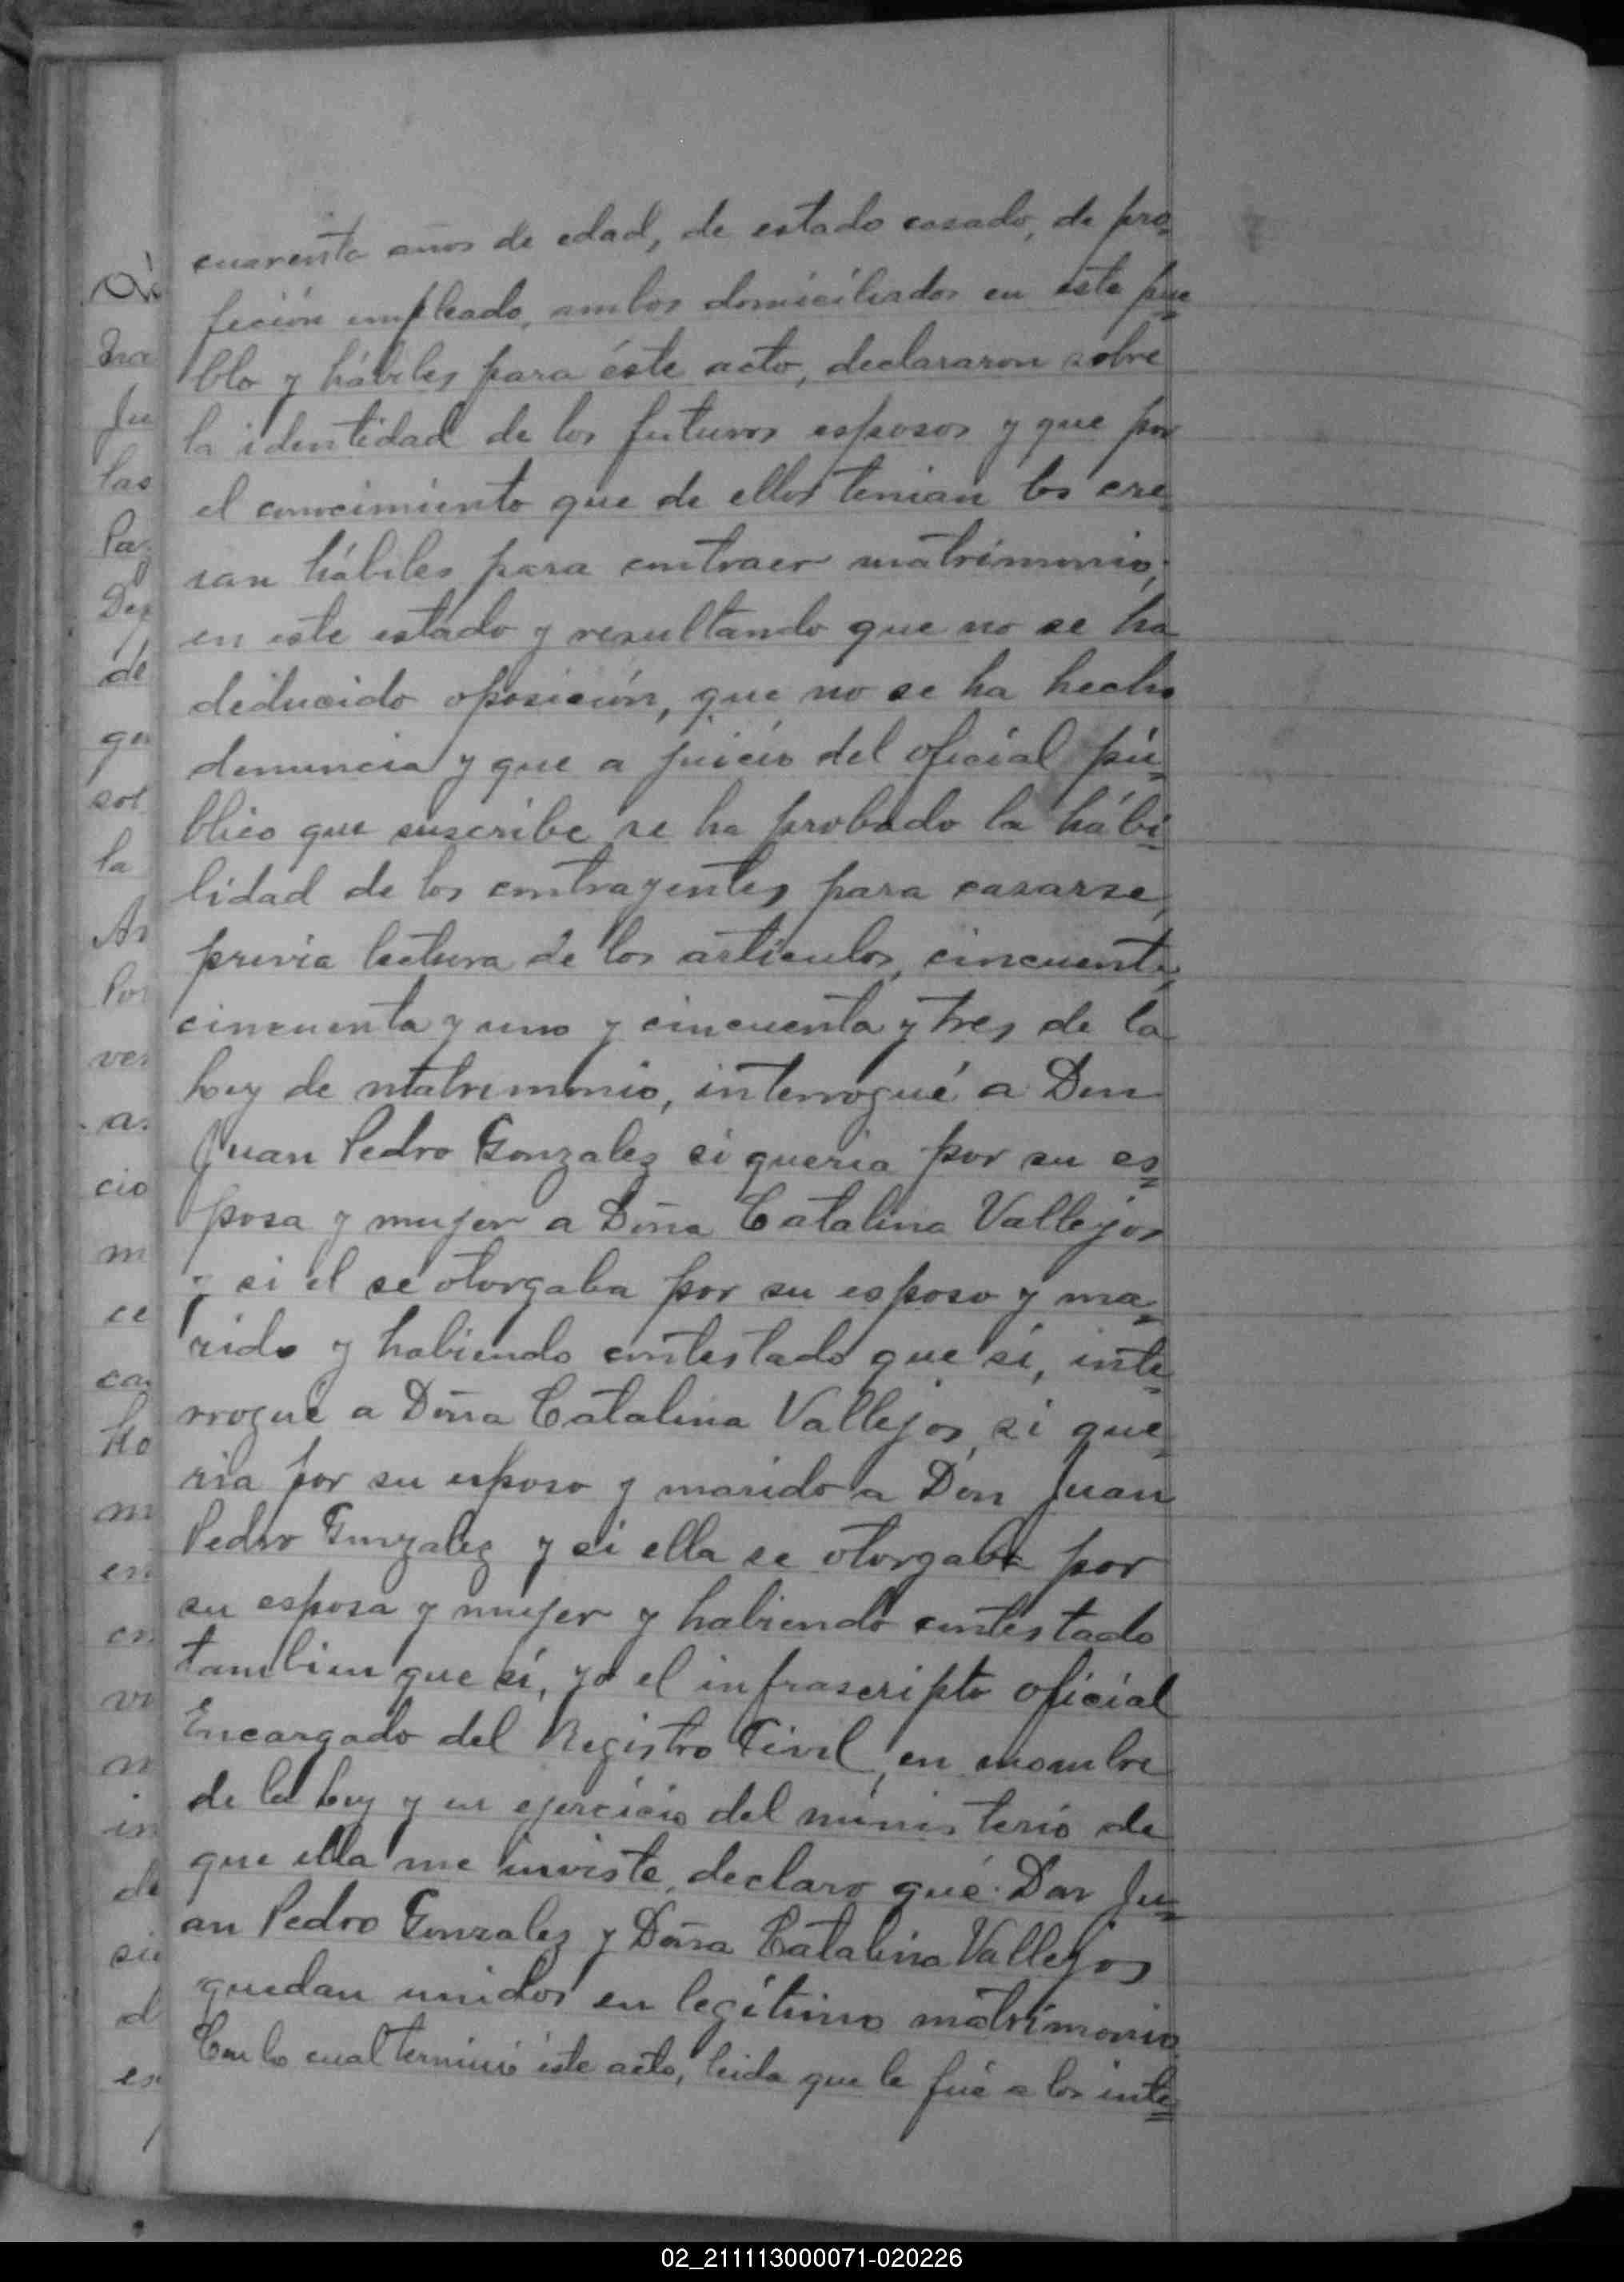 cuarenta años de edad, de estado casado, de pro=
feción empleado, ambos domiciliados en este pue=
blo y hábiles para éste acto, declararon sobre
la identidad de los futuros esposos y que por
el conocimiento que de ellos tenian los cre=
ian hábiles para contraer matrimonio;
en este estado y resultando que no se ha
deducido oposición, que no se ha hecho
denuncia y que a juicio del oficial pú=
blico que suscribe se ha probado la hábi=
lidad de los contrayentes para casarse,
previa lectura de los articulos, cincuenta,
cincuenta y uno y cincuenta y tres de la
Ley de Matrimonio, interrogué a Don
Juan Pedro Gonzalez si queria por su es=
posa y mujer a Doña Catalina Vallejos
y si el se otorgaba por su esposo y ma=
rido y habiendo contestado que sí, inte=
rrogué a Doña Catalina Vallejos, si que=
ria por su esposo y marido a Don Juan
Pedro Gonzalez y si ella se otorgaba por
su esposa y mujer y habiendo contestado
tambien que sí, yo el infrascripto oficial
Encargado del Registro Civil, en nombre
de la Ley y en ejercicio del ministerio de
que ella me inviste, declaro que Don Ju=
an Pedro Gonzalez y Doña Catalina Vallejos
quedan unidos en legítimo matrimonio.
Con lo cual terminó éste acto, leida que le fué a los inte=
02_211113000071-020226